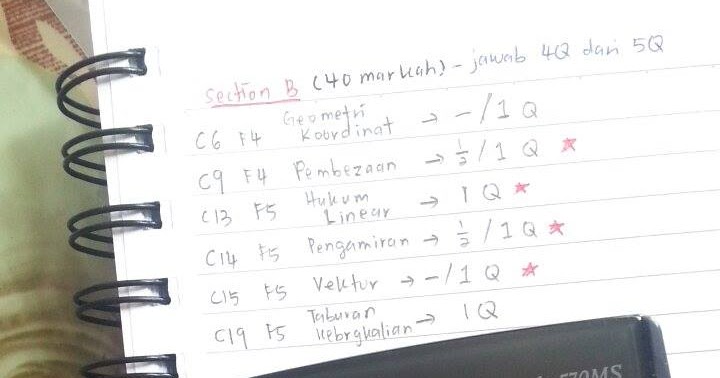 Section B (40 markah) - jawab 4Q dari 5Q
C6 F4 Geometri Koordinat → -/1 Q
C9 F4 Pembezaan → ½/1 Q ★
C13 F5 Hukum Linear → 1 Q ★
C14 F5 Pengamiran → ½/1 Q ★
C15 F5 Vektor → -/1 Q ★
C19 F5 Taburan Kebrgkalian → 1Q
570MS